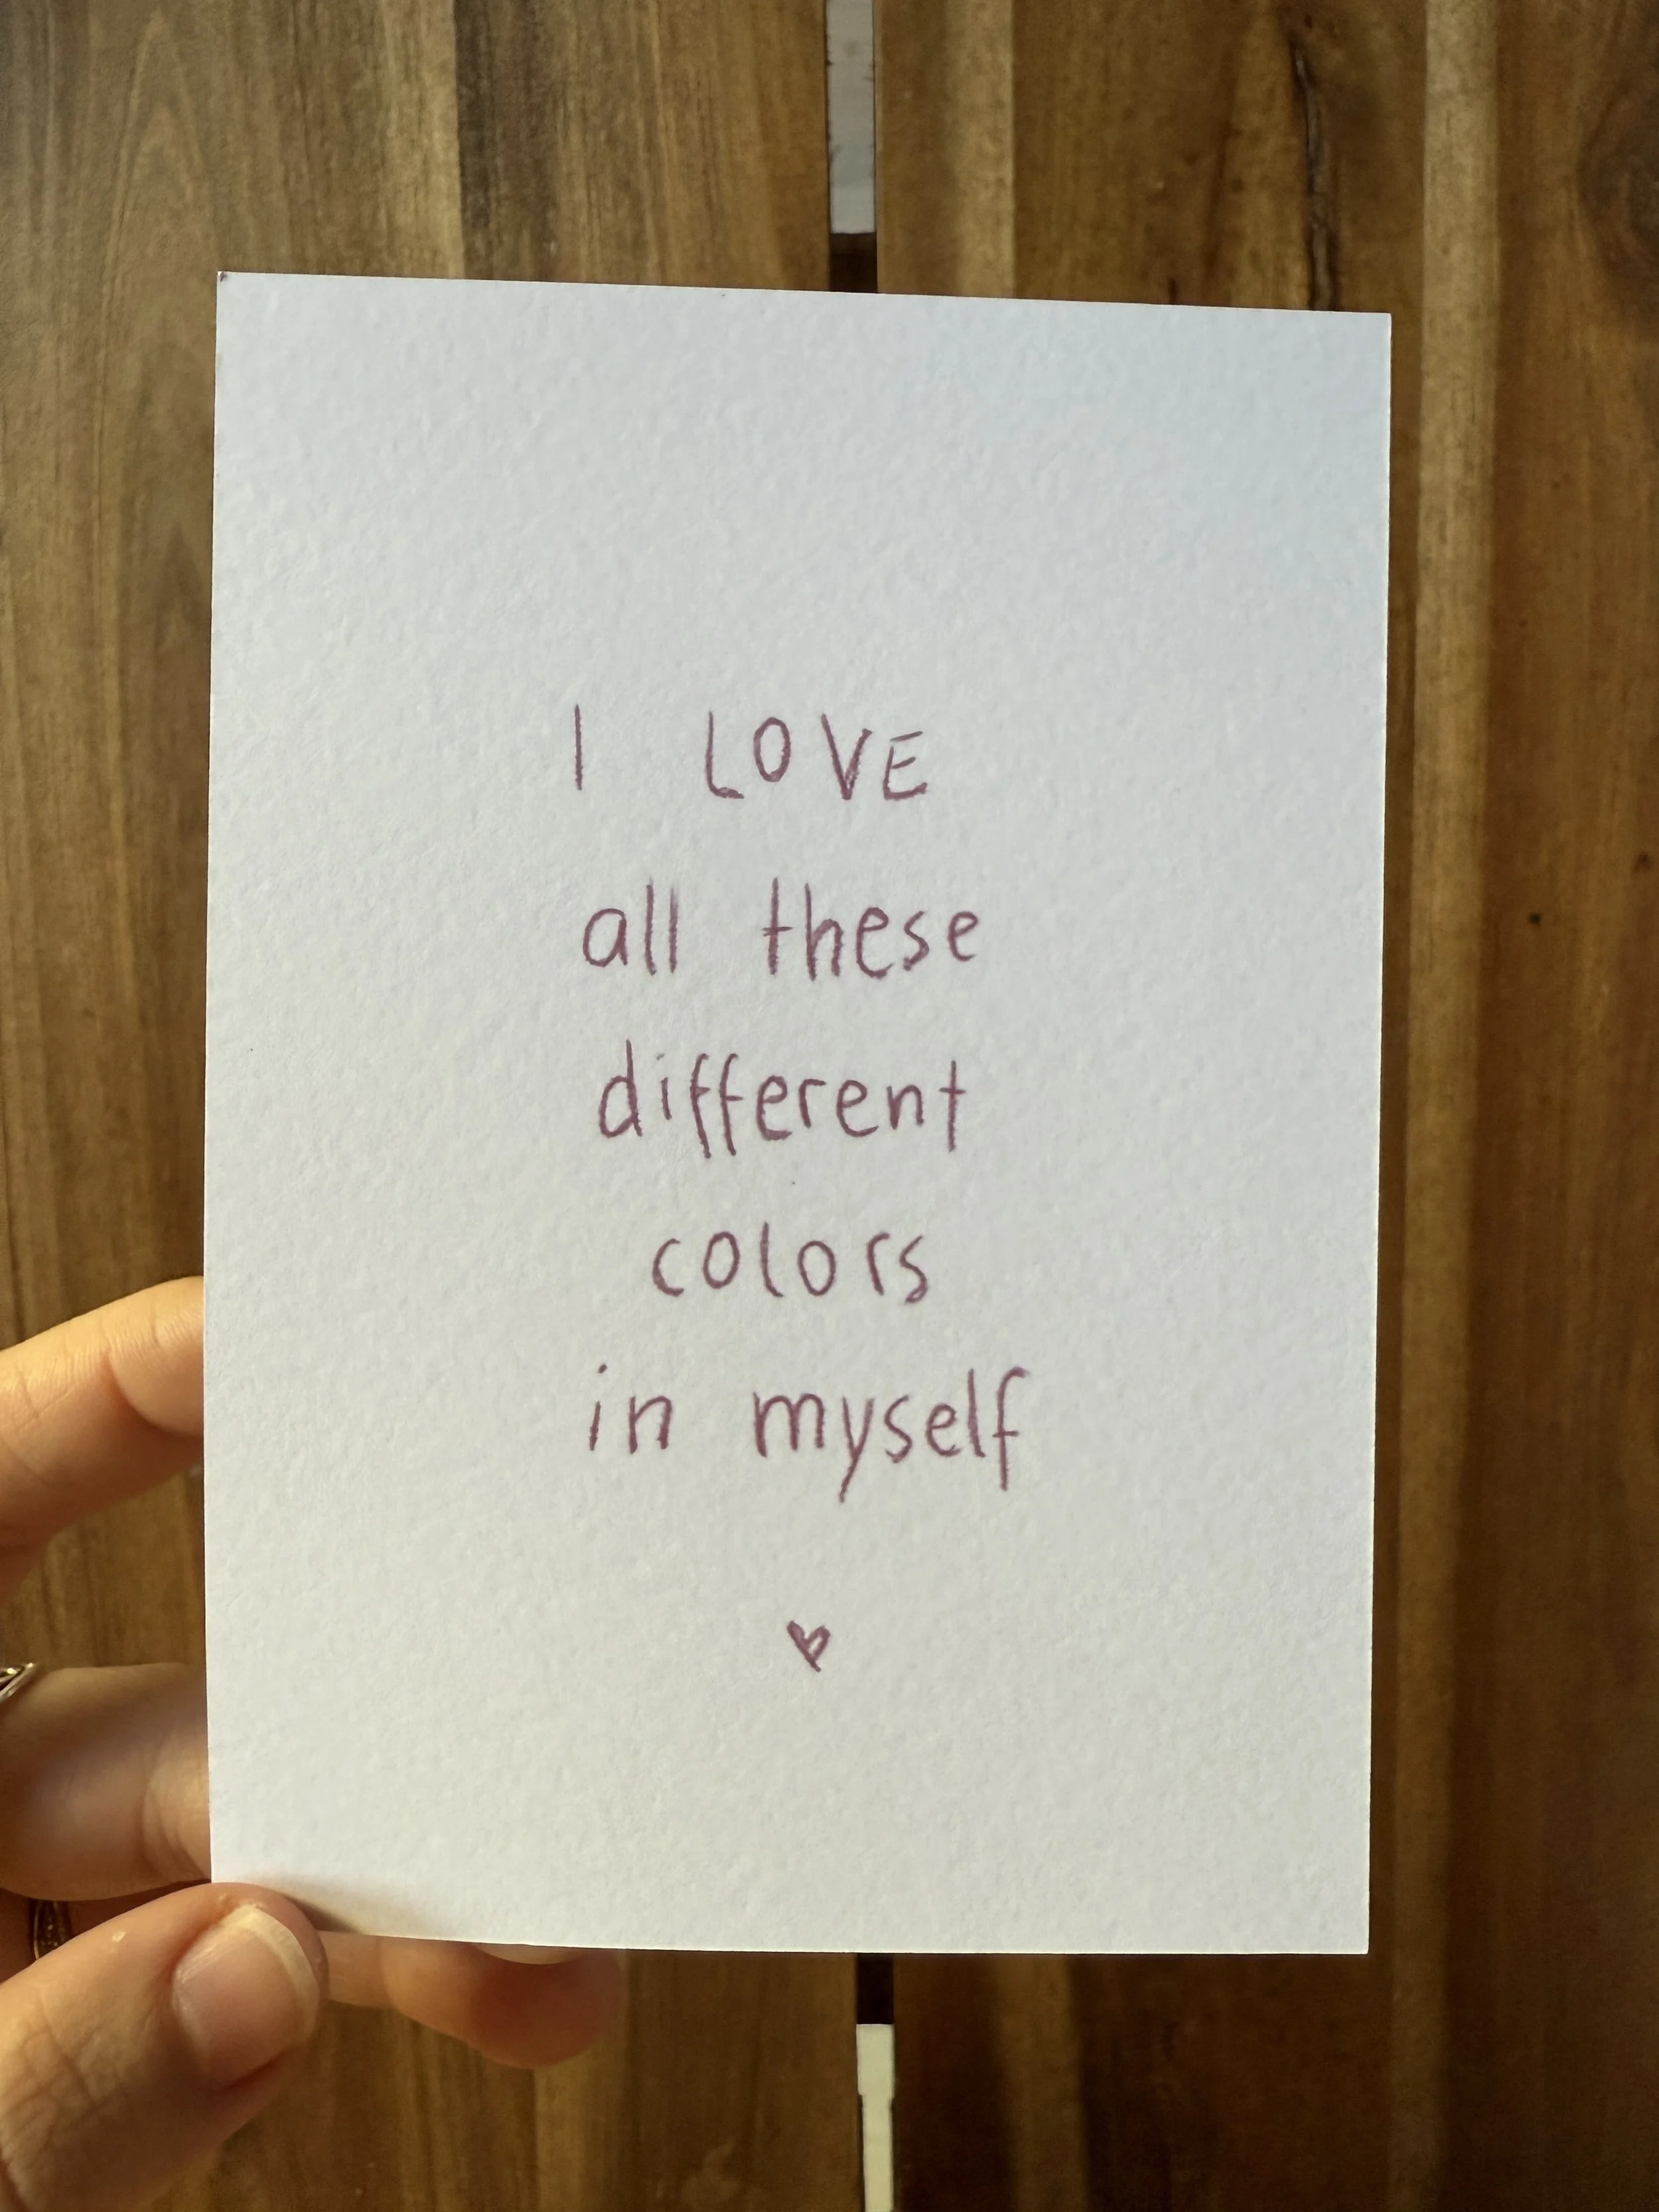 I LOVE
all these
different
colors
in myself